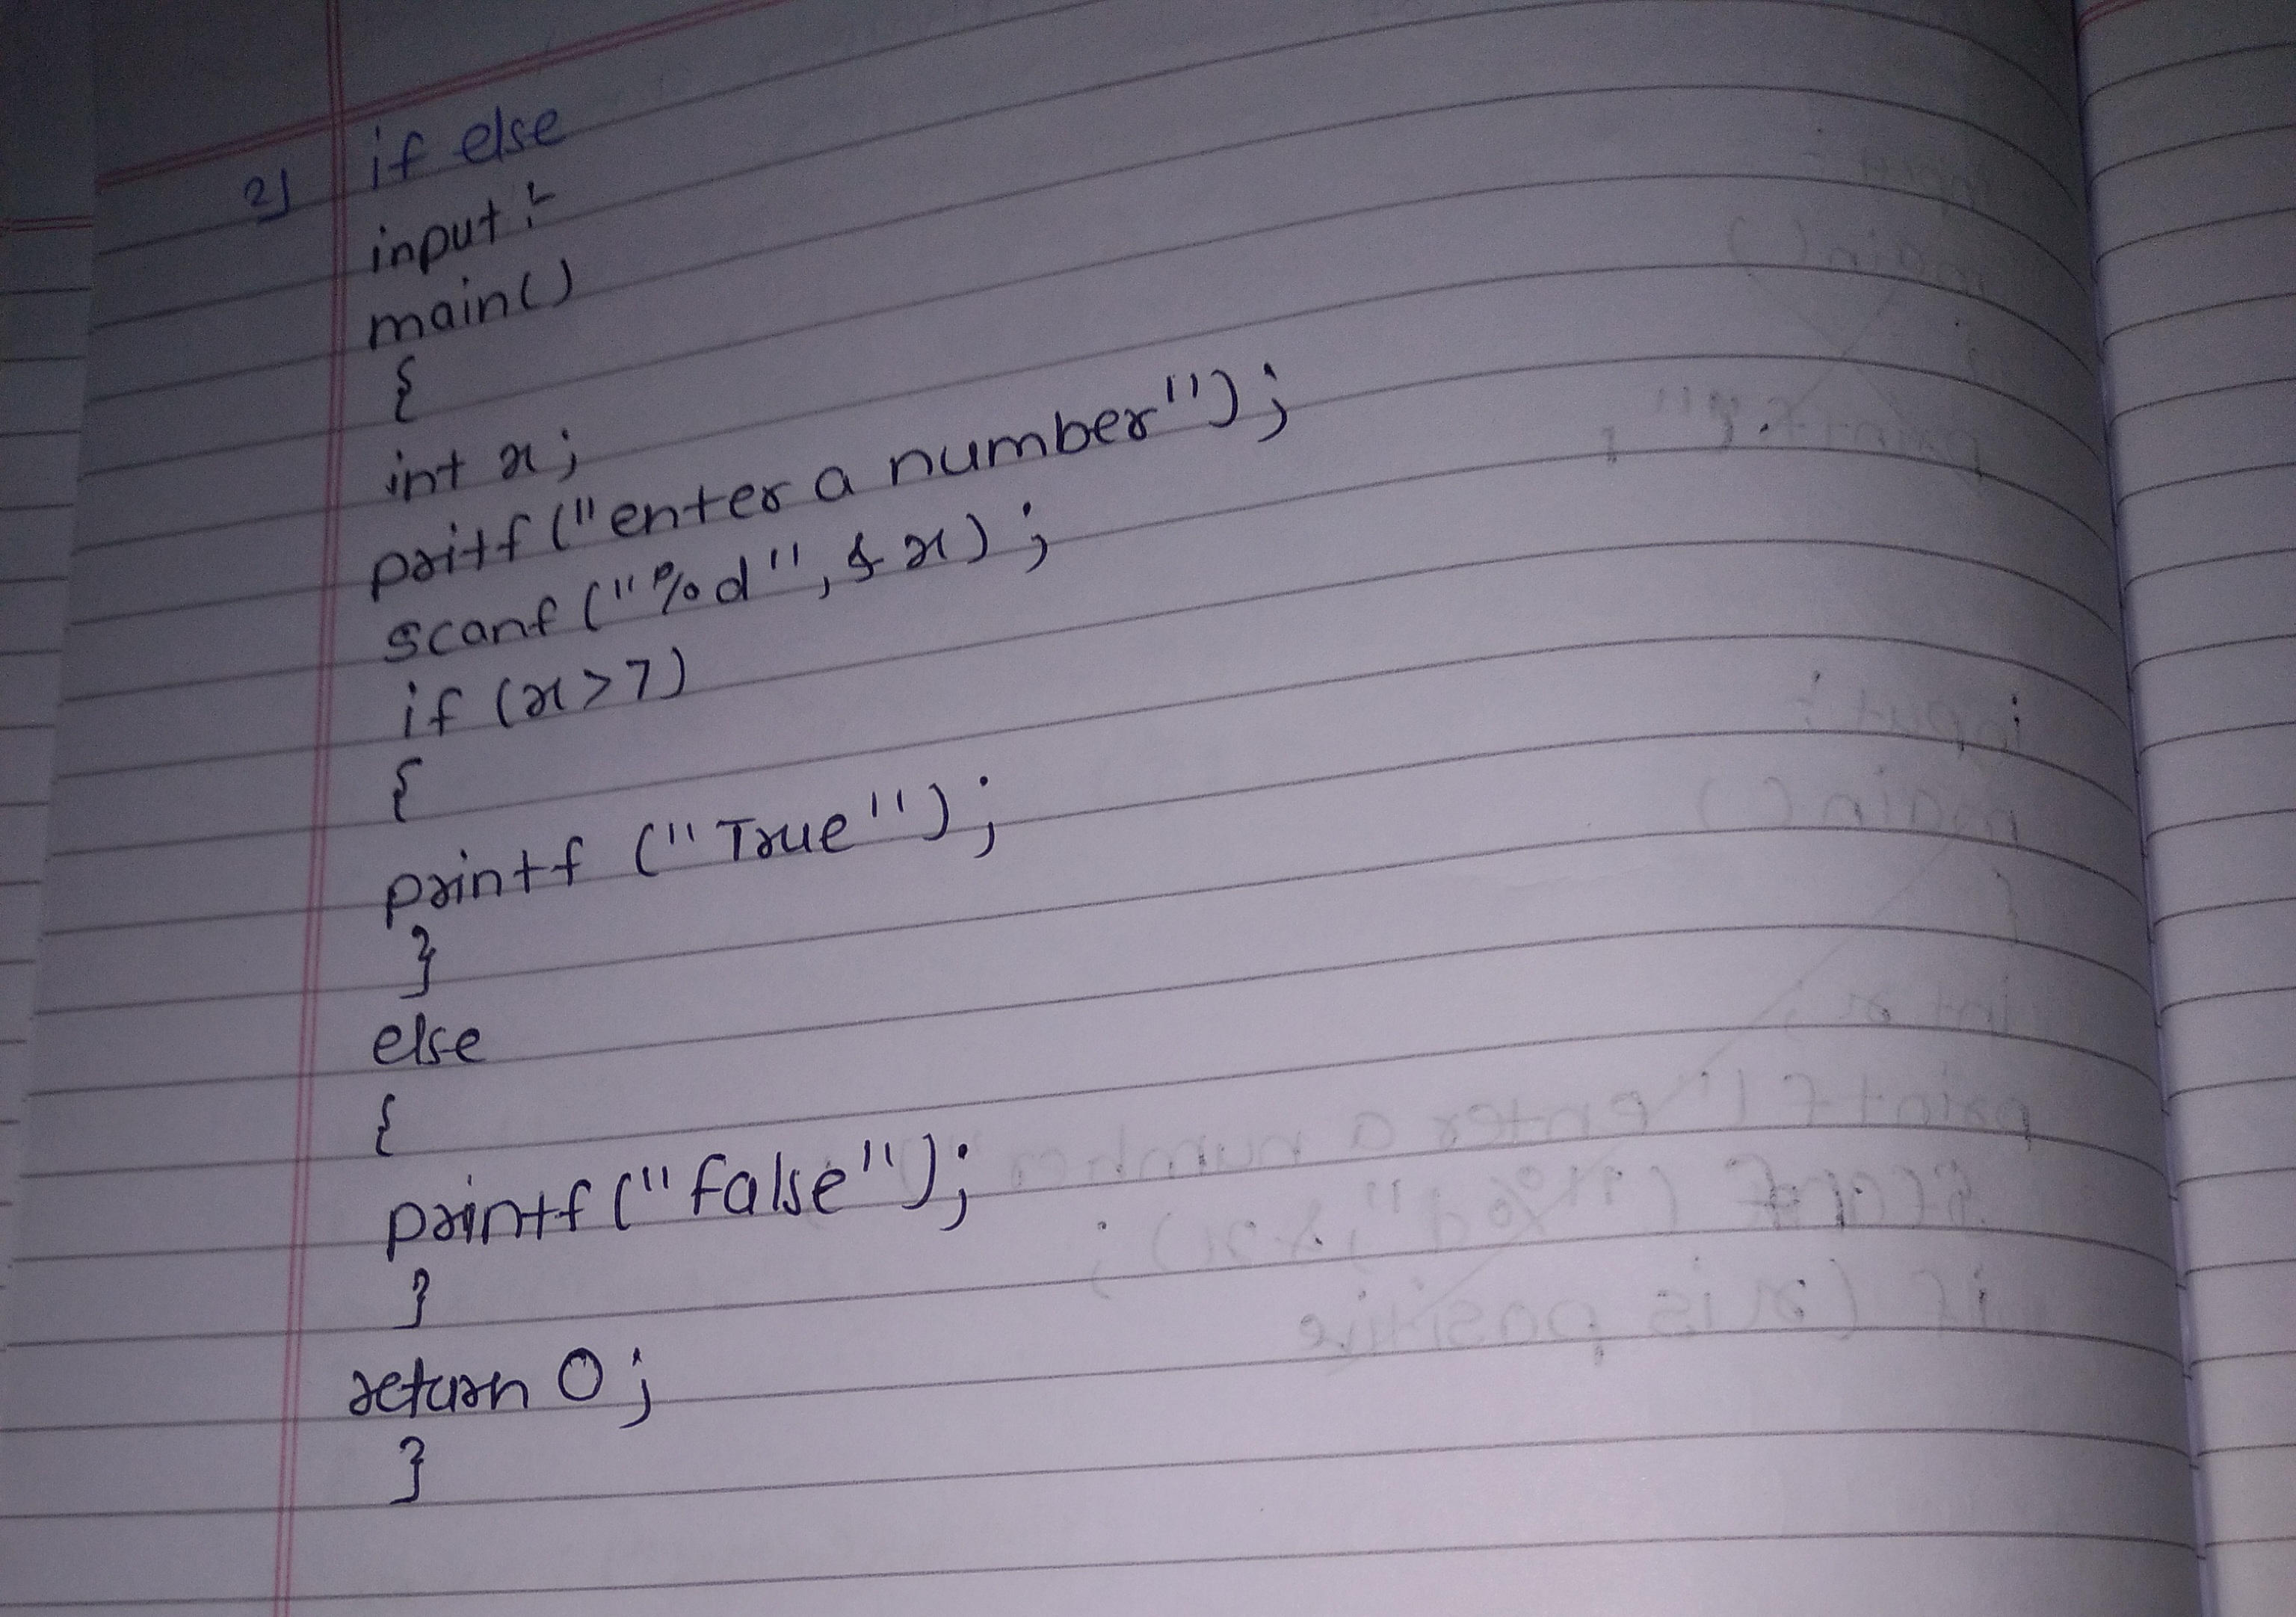 2) if else
input :-
main()
{
int x;
pritf("enter a number");
scanf("%d", &x);
if (x>7)
{
printf ("True");
}
else
{
printf("false");
}
return 0;
}